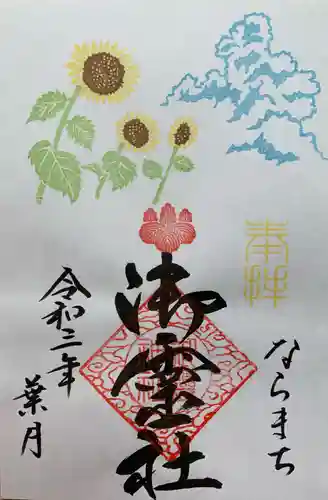 奉拝
ならまち
御霊社
令和三年
葉月